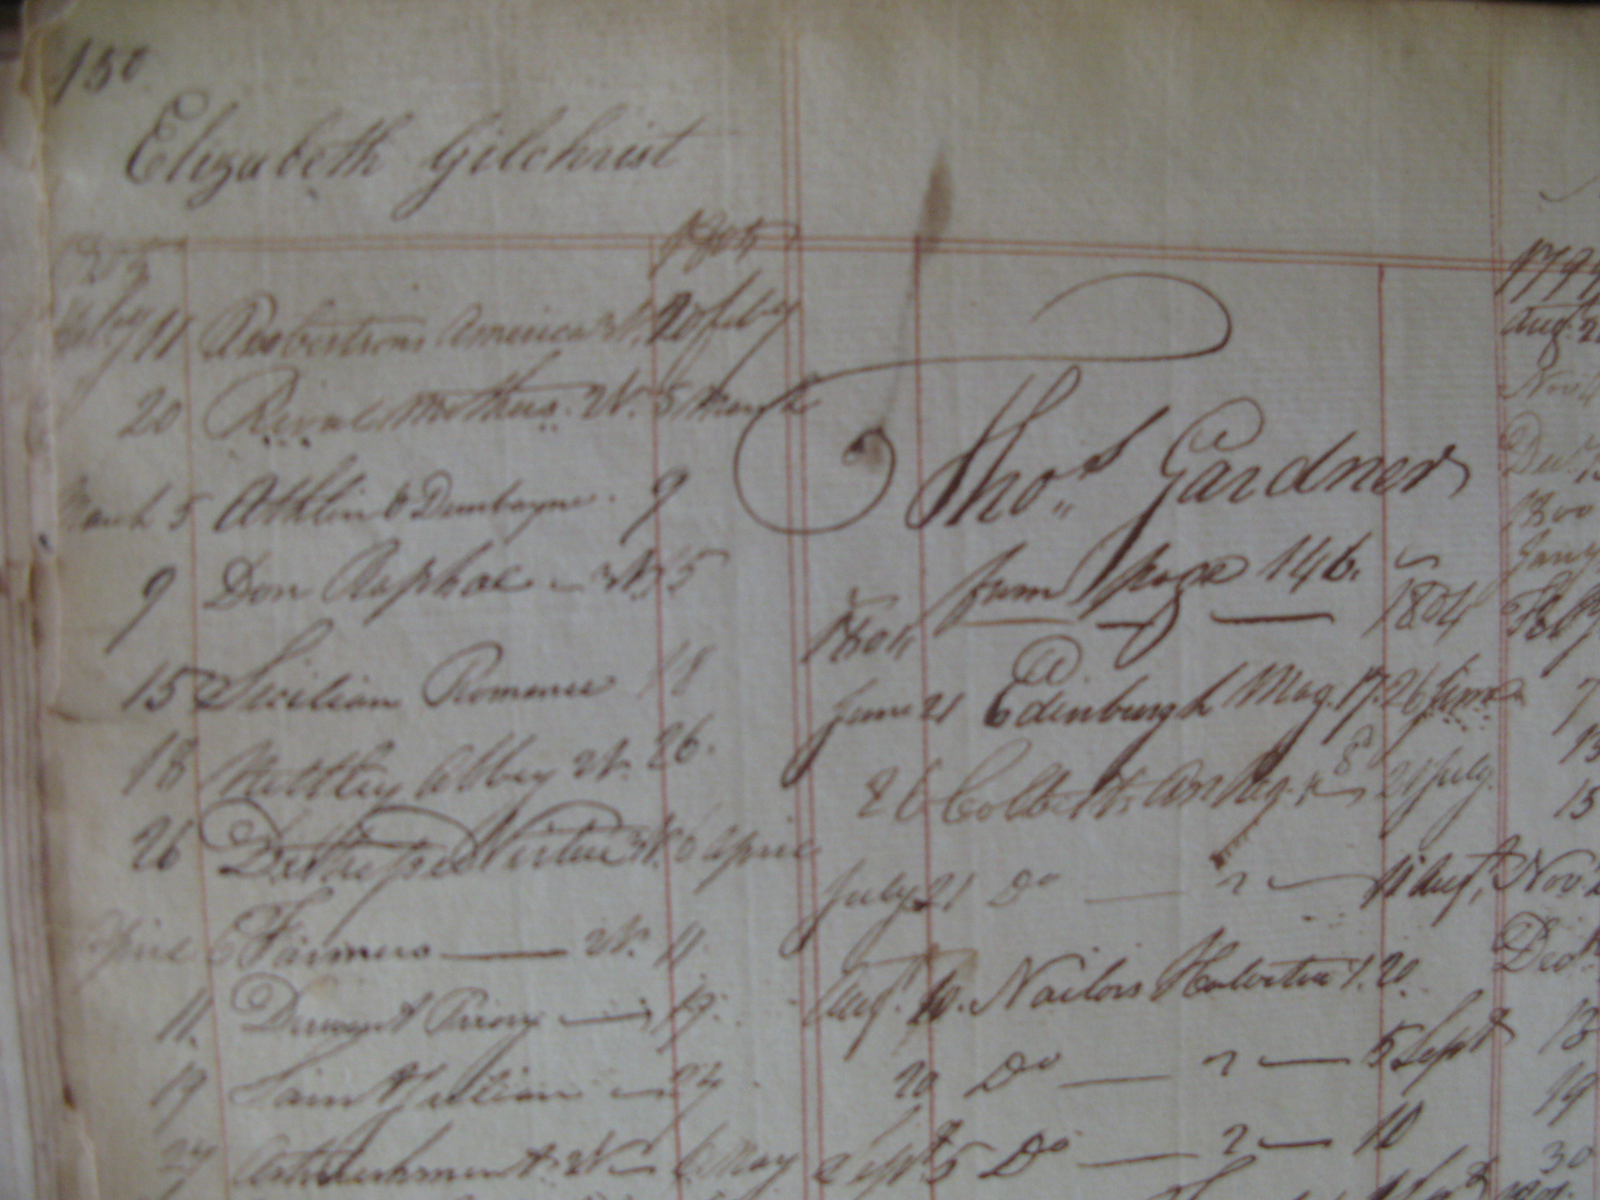 150
Elizabeth Gilchrist
1805
11 Robertsons America N. 20 feby
20 Rival Mothers. N. 5 March
March 5 Athlin & Dunbayne. 9
9 Don Raphael — N. 15
15 Sicilian Romance 18
18 Nettley Abbey N. 26.
26 Virtue N. 6 April
April 6 Farmers — N. 11
11. Derwent Priory — 19.
19 Saint Julian — 24
24 N — 6 May
Thos. Gardner
from page 146.
1804 1804
June 21 Edinburgh Mag. 17. 26 June
26 8 21 July.
July 21 Do — 2 — 11 Augt.
Augt. 10. Nailors Helvetia 1. 20.
20 Do — 2 — 5 Sept
Sept. 5 Do — 2 — 10
1799
Aug. 2
Nov.
Dec.
1800
Jany
Feb
7
13
15
Nov.
Dec.
13
19
30